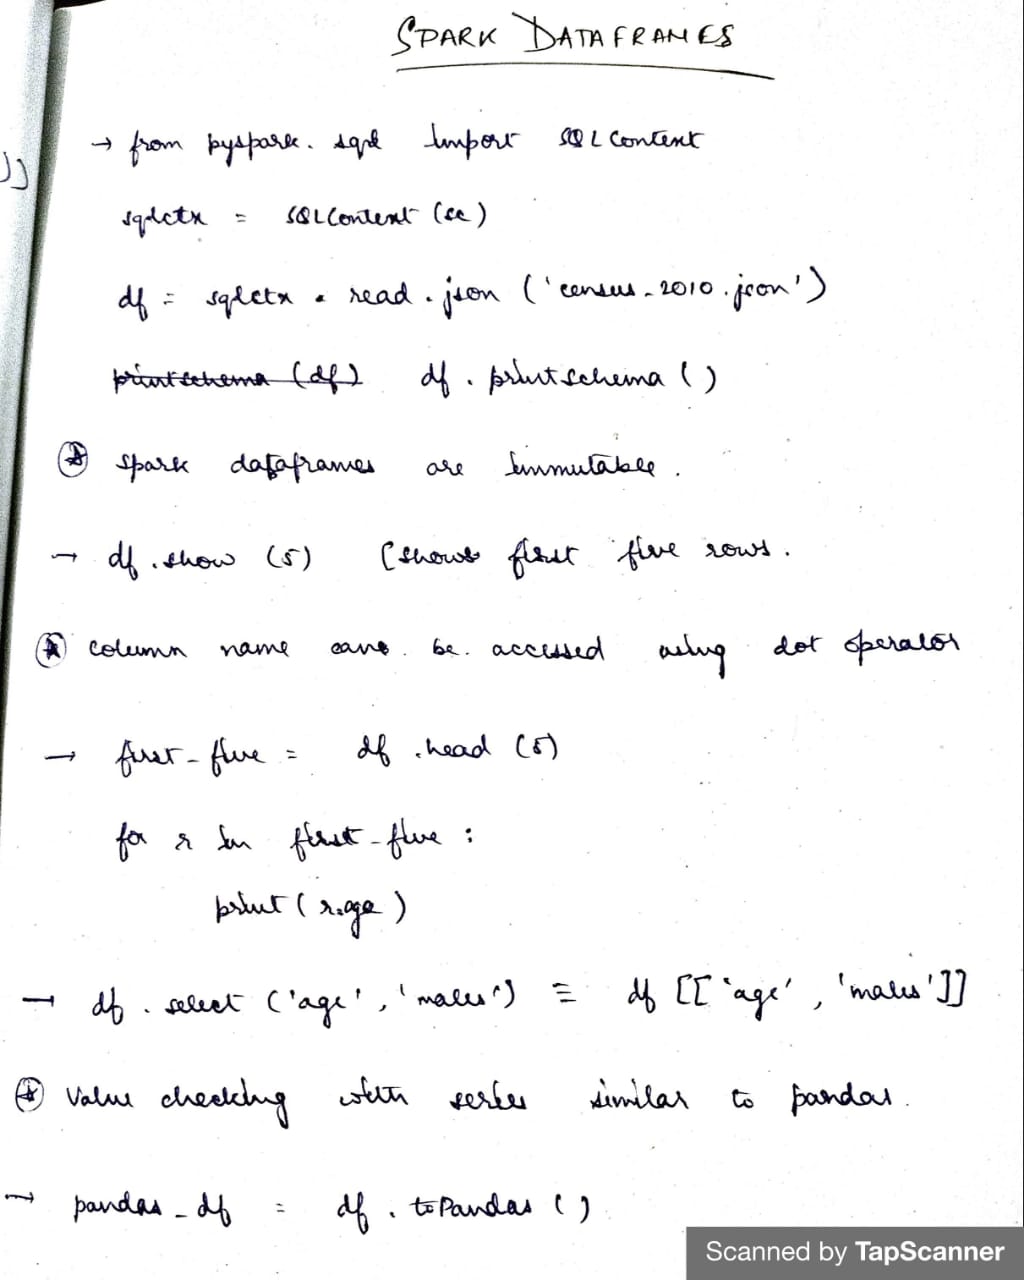 SPARK DATAFRAMES
→ from pyspark.sql import SQLContext
sqlctx = SQLContext (sc)
df = sqlctx . read . json ('census_2010.json')
printschema (df) df . printschema ()
spark dataframes are immutable .
→ df . show (5) (shows first five rows .
column name can be accessed using dot operator
→ first_five = df . head (5)
for r in first_five :
print ( r.age )
→ df . select ('age' , 'males') ≡ df [[ 'age' , 'males' ]]
value checking with series similar to pandas .
→ pandas_df = df . toPandas ( )
Scanned by TapScanner